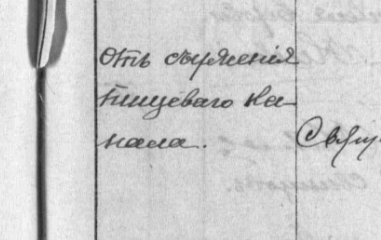 Отъ съуженія
пищеваго ка-
нала. Свящ